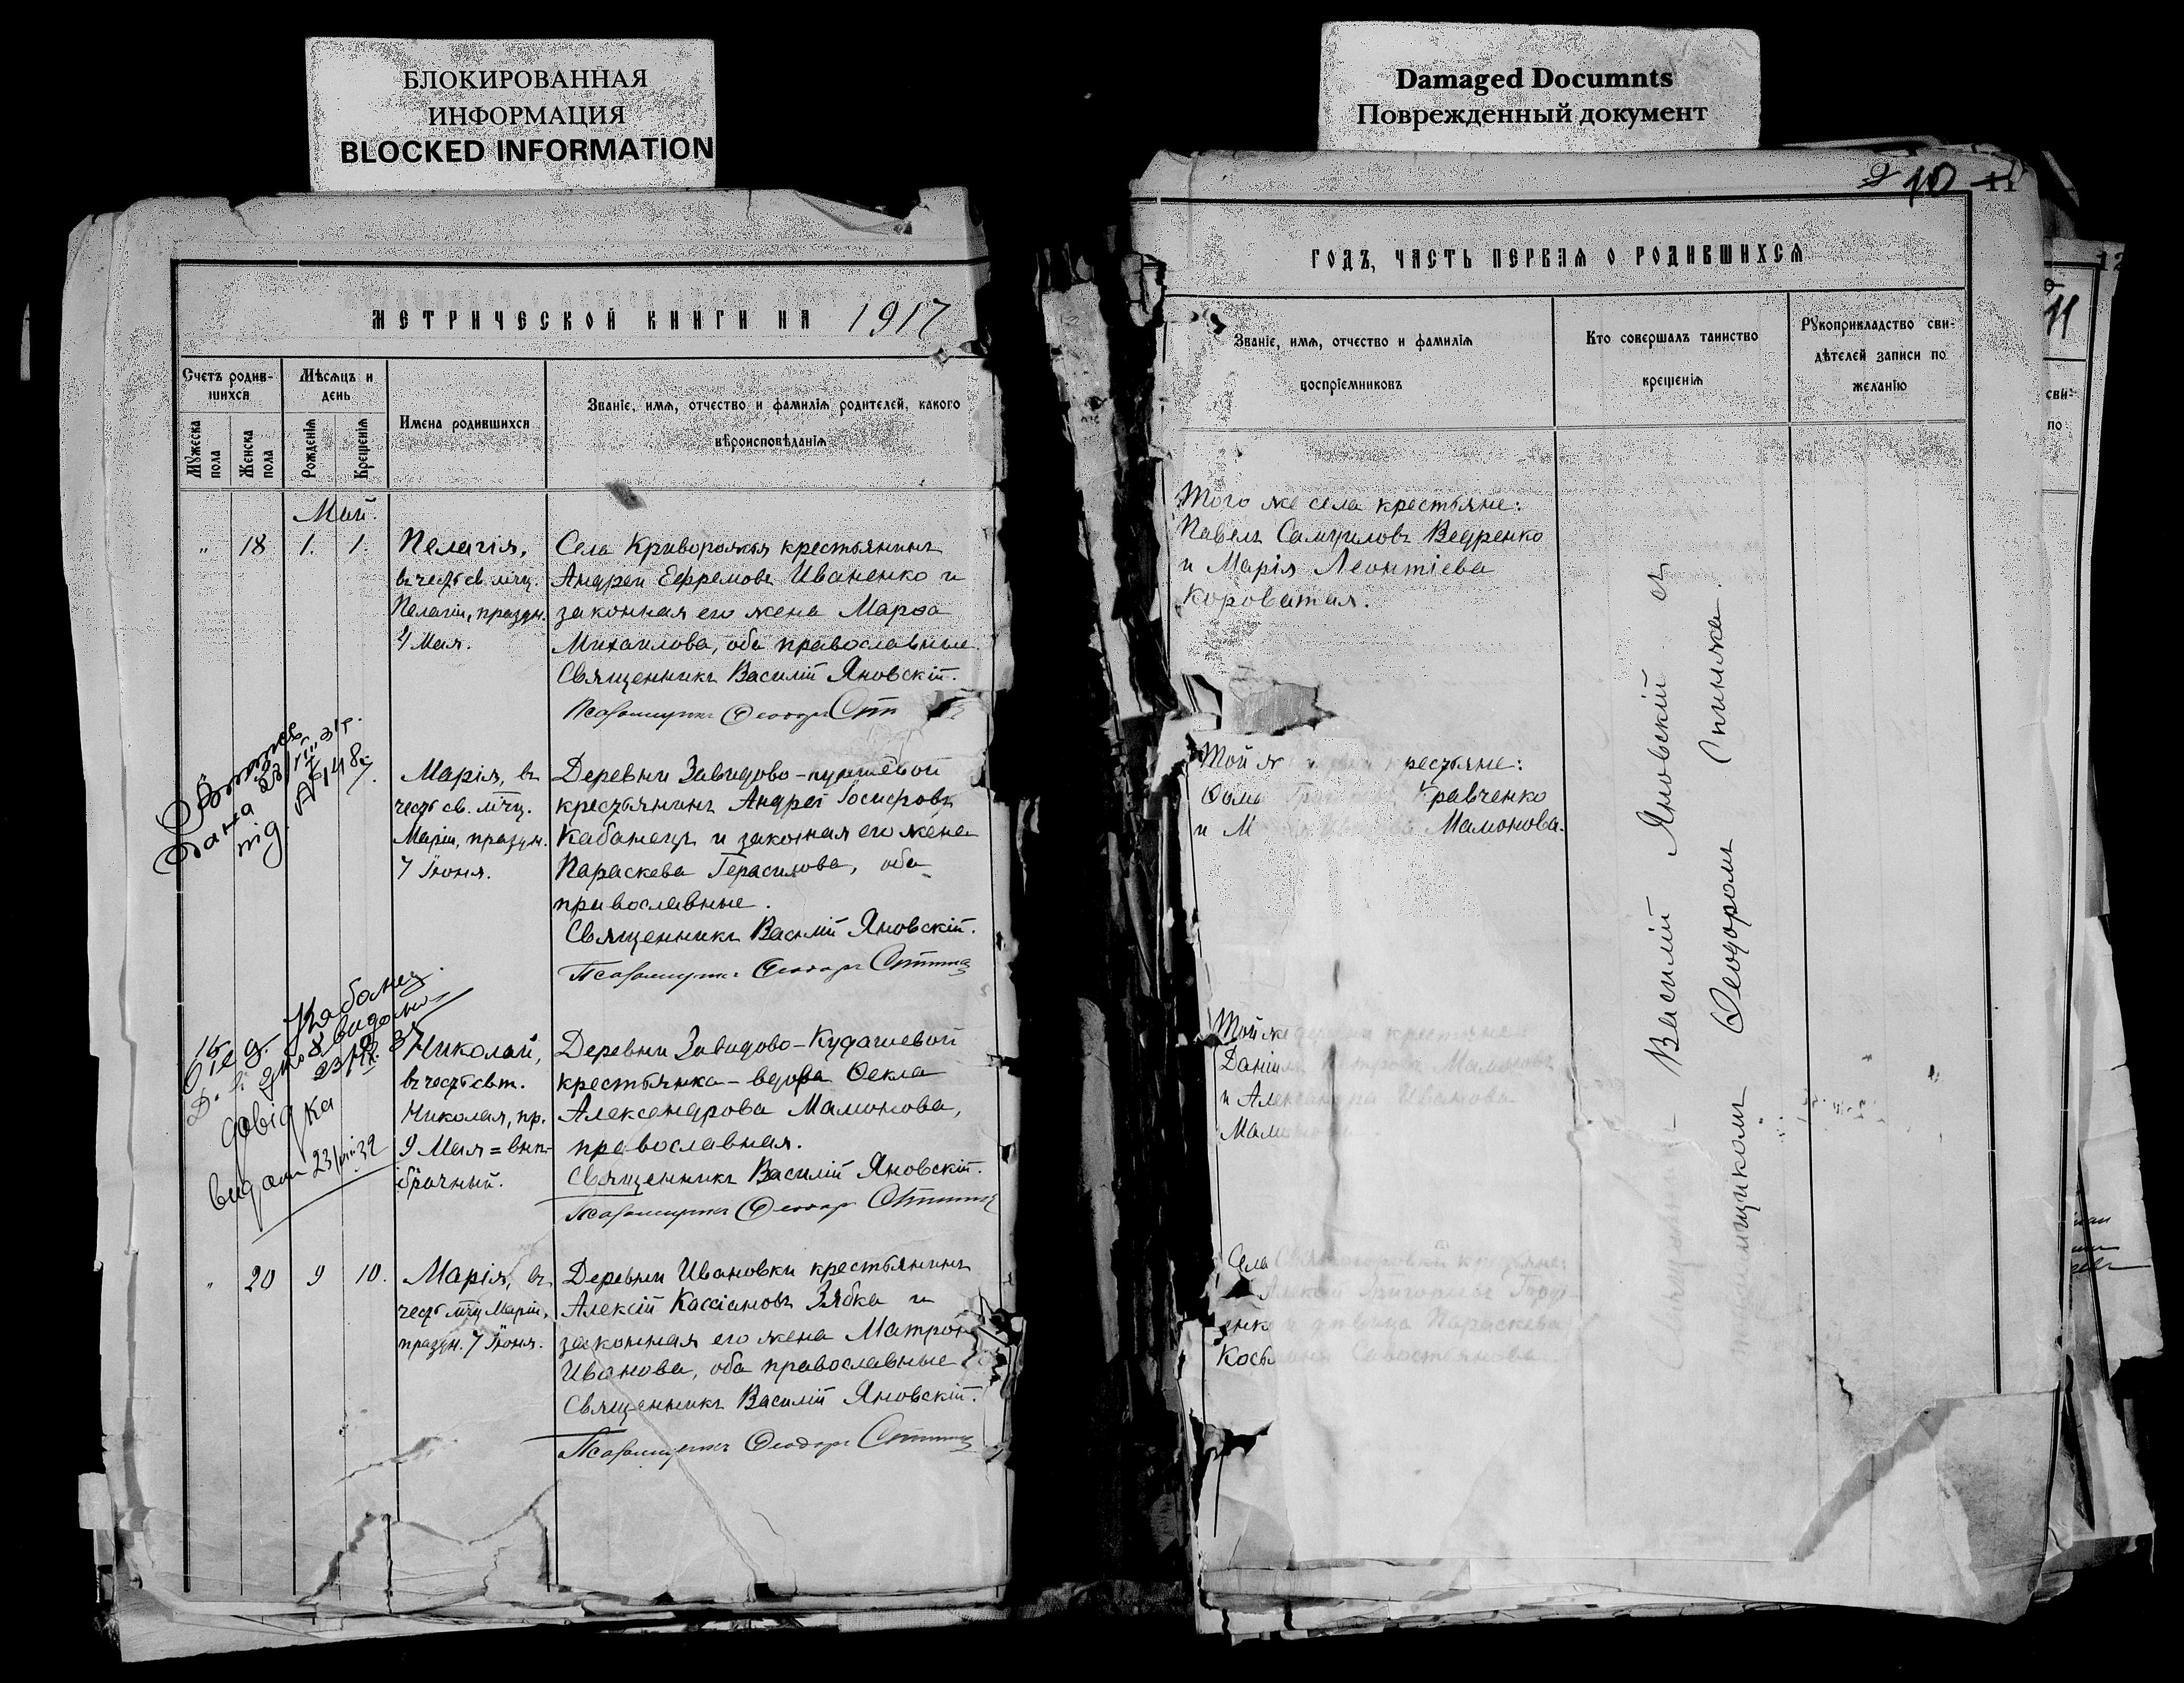 БЛОКИРОВАННАЯ
ИНФОРМАЦИЯ
BLOCKED INFORMATION
Damaged Documnts
Поврежденный документ
МЕТРИЧЕСКОЙ КНИГИ НА 1917
Счетъ родив-
шихся
Мѣсяцъ и
день
Мужеска
пола
Женска
пола
Рожденія
Крещенія
Имена родившихся
Званіе, имя, отчество и фамилія родителей, какого
вѣроисповѣданія
Май.
" 18 1. 1.
Пелагія,
въ честь св. мчц.
Пелагіи, праздн.
4 Мая.
Села Криворожья крестьянинъ
Андрей Ефремовъ Иваненко и
законная его жена Марѳа
Михаилова, оба православные.
Священникъ Василій Яновскій.
Псаломщикъ Ѳеодоръ
Марія, въ
честь св. мчц.
Маріи, праздн.
7 Іюня.
Деревни Завидово-
крестьянинъ Андрей Іосифовъ
Кабанецъ и законная его жена
Параскева Герасимова, оба
православные.
Священникъ Василій Яновскій.
Псаломщикъ Ѳеодоръ
Кабанец
довідка
видана 23/VIII 32
Николай,
въ честь свт.
Николая, пр.
9 Мая = внѣ-
брачный.
Деревни Завидово-Кудашевой
крестьянка - вдова Ѳекла
Александрова Мамонова,
православная.
Священникъ Василій Яновскій.
Псаломщикъ Ѳеодоръ
" 20 9 10.
Марія, въ
честь мчц Маріи,
праздн. 7 Іюня.
Деревни Ивановки крестьянинъ
Алексій Кассіановъ Зябка и
законная его жена Матрона
Иванова, оба православные
Священникъ Василій Яновскій.
Псаломщикъ Ѳеодоръ
10 11
ГОДЪ, ЧАСТЬ ПЕРВАЯ О РОДИВШИХСЯ
Званіе, имя, отчество и фамилія
воспріемниковъ
Кто совершалъ таинство
крещенія
Рукоприкладство сви-
дѣтелей записи по
желанію
Того же села крестьяне:
Павелъ Самуиловъ Ведренко
и Марія Леонтіева
Короватая.
Той же крестьяне:
Ѳома Кравченко
и Мамонова.
Той же деревни крестьяне
Даніилъ Петровъ Мамоновъ
и Александра Иванова
Мамонова.
Села крестьяне:
Алексій Григорьевъ
и дѣвица Параскева
Севостьянова
Василій Яновскій съ
псаломщикомъ Ѳеодоромъ
12
11
сви-
по